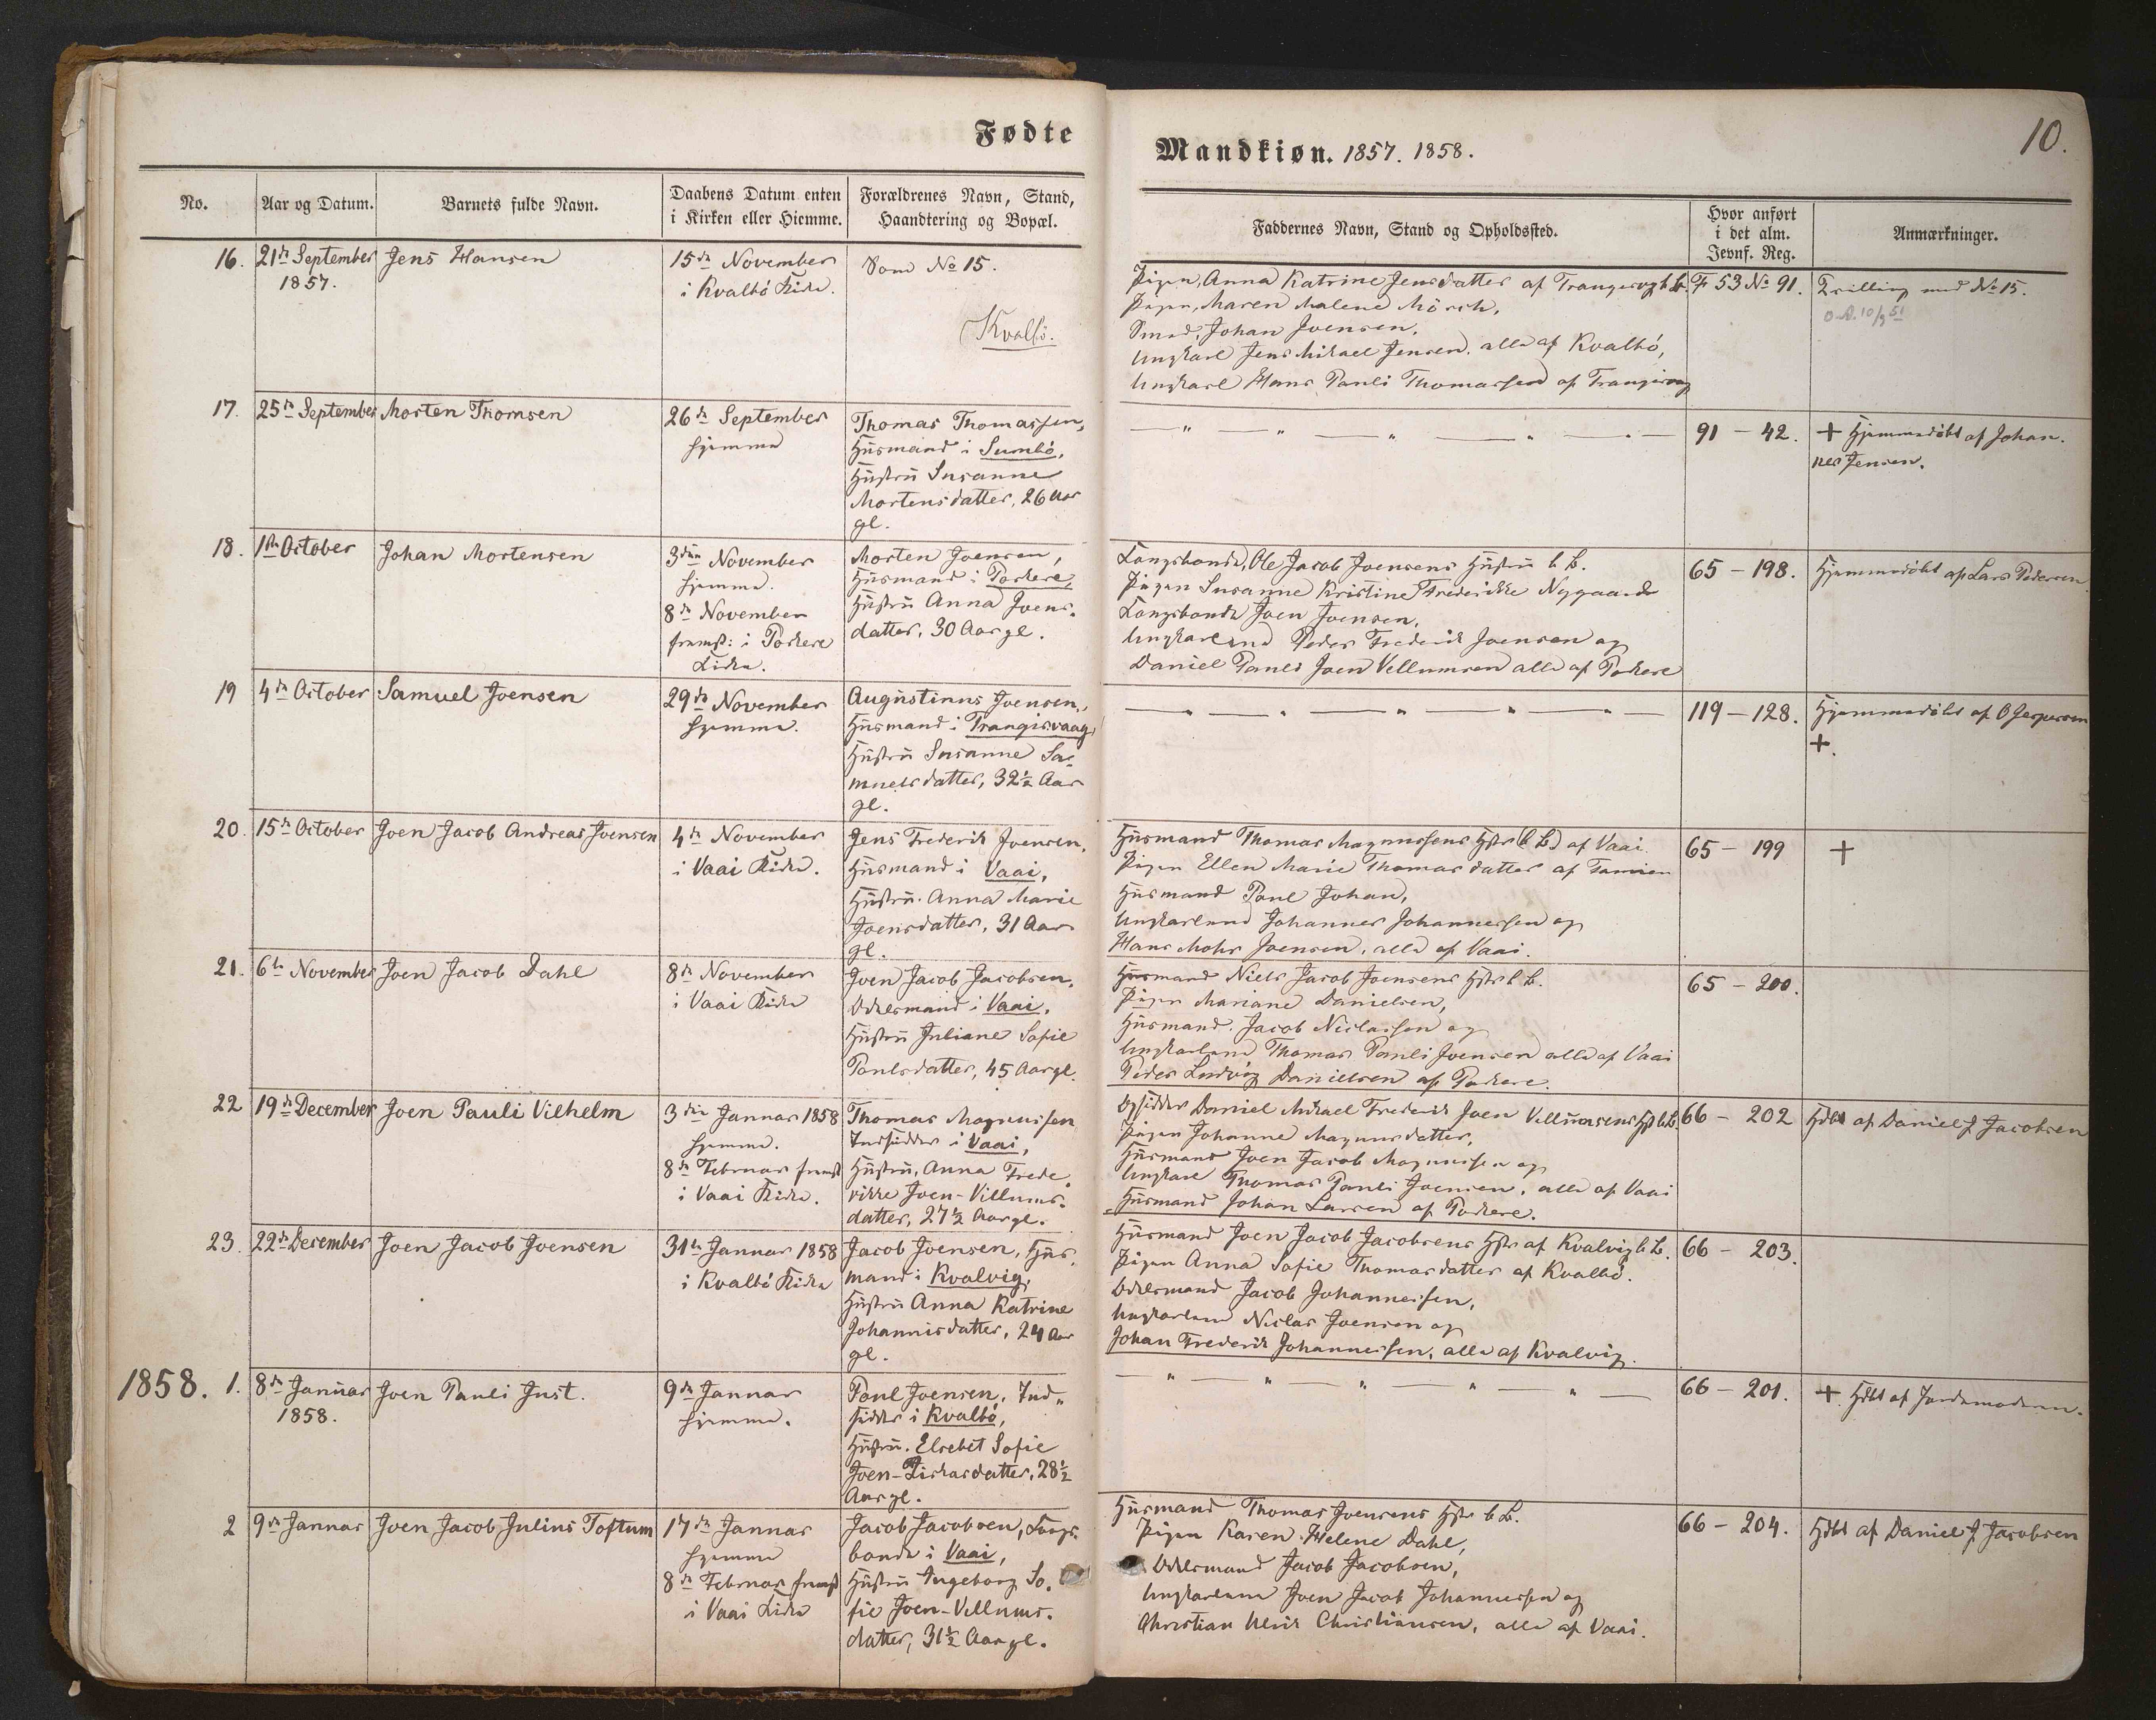 Fødte
Mandkiøn. 1857. 1858.
10.
No.
Aar og Datum.
Barnets fulde Navn.
Daabens Datum enten
i Kirken eller Hiemme.
Forældrenes Navn, Stand,
Haandtering og Bopæl.
Faddernes Navn, Stand og Opholdssted.
Hvor anført
i det alm.
Jevnf. Reg.
Anmærkninger.
16.
21de September
1857.
Jens Hansen
15de November
i Kvalbö Kirke.
Som No 15.
Kvalbö.
Pigen, Anna Katrine Jensdatter af Trangisvog b. B.
Pigen, Maren Malene Mörch,
Smed, Johan Joensen,
Ungkarl Jens Mikael Jensen, alle af Kvalbö,
Ungkarl Hans Pauli Thomassen af Trangisvog
F 53 No 91.
Tvilling med No 15.
17.
25de September
Morten Thomsen
26de September
hjemme
Thomas Thomassen,
Husmand i Sumbö,
Hustru Susanne
Mortensdatter, 26 Aar
gl.
91 - 42.
+ Hjemmedöbt af Johan-
nes Jensen.
18.
1ste October
Johan Mortensen
3die November
hjemme.
8de November
fremst: i Porkere
Kirke.
Morten Joensen,
Husmand i Porkere,
Hustru Anna Joens-
datter, 30 Aar gl.
Kongsbonde, Ole Jacob Joensens Hustru b. B.
Pigen Susanne Kristine Frederikke Nygaard
Kongsbonde Joen Joensen,
Ungkarlene Peder Frederik Joensen og
Daniel Pauli Joen Vellumsen alle af Porkere
65 - 198.
Hjemmedöbt af Lars Pedersen
19
4de October
Samuel Joensen
29de November
hjemme.
Augustinus Joensen,
Husmand i Trangisvaag,
Hustru Susanne Sa-
muelsdatter, 32½ Aar
gl.
119 - 128.
Hjemmedöbt af O Jespersen
+.
20.
15de October
Joen Jacob Andreas Joensen
4de November
i Vaai Kirke.
Jens Frederik Joensen,
Husmand i Vaai,
Hustru. Anna Marie
Joensdatter, 31 Aar
gl.
Husmand Thomas Magnussens Hstr (b B) af Vaai.
Pigen Ellen Marie Thomasdatter af Famien
Husmand Poul Johan,
Ungkarlene Johannes Johannessen og
Hans Mohr Joensen, alle af Vaai.
65 - 199
+
21.
6te November
Joen Jacob Dahl
8de November
i Vaai Kirke
Joen Jacob Jacobsen,
Odelsmand i Vaai,
Hustru Juliane Sofie
Poulsdatter, 45 Aar gl.
Husmand Niels Jacob Joensens Hstr b B.
Pigen Mariane Danielsen,
Husmand. Jacob Niclassen og
Ungkarlene Thomas Pauli Joensen alle af Vaai
Peder Ludvig Danielsen af Porkere.
65 - 200.
22
19de December
Joen Pauli Vilhelm
3die Januar 1858
hjemme.
8de Februar fremst
i Vaai Kirke.
Thomas Magnussen
Indsidder i Vaai,
Hustru, Anna Frede-
rikke Joen-Villums-
datter, 27½ Aar gl.
Opsidder Daniel Mikael Frederik Joen Vellumsens Hst b B.
Pigen Johanne Magnusdatter,
Husmand Joen Jacob Magnussen og
Ungkarl Thomas Pauli Joensen, alle af Vaai
Husmand Johan Larsen af Porkere.
66 - 202
Hdbt af Daniel J Jacobsen
23.
22de December
Joen Jacob Joensen
31te Januar 1858
i Kvalbö Kirke
Jacob Joensen, Hus-
mand i Kvalvig,
Hustru Anna Katrine
Johannisdatter, 24 Aar
gl.
Husmand Joen Jacob Jacobsens Hstr af Kvalvig b B.
Pigen Anna Sofie Thomasdatter af Kvalbö.
Odelsmand Jacob Johannessen,
Ungkarlene Niclas Joensen og
Johan Frederik Johannessen, alle af Kvalvig.
66 - 203.
1858.
1.
8de Januar
1858.
Joen Pauli Just.
9de Januar
hjemme.
Poul Joensen, Ind-
sidder i Kvalbö,
Hustru. Elsebet Sofie
Joen-Liskasdatter, 28½
Aar gl.
66 - 201.
+. Hdbt af Jordemoderen.
2
9de Januar
Joen Jacob Julius Toftum
17de Januar
hjemme
8de Februar fremst
i Vaai Kirke
Jacob Jacobsen, Kongs-
bonde i Vaai,
Hustru Ingeborg So-
fie Joen-Vellums-
datter, 31½ Aar gl.
Husmand Thomas Joensens Hstr b B.
Pigen Karen Helene Dahl,
Odelsmand Jacob Jacobsen,
Ungkarlene Joen Jacob Johannessen og
Christian Ulrik Christiansen, alle af Vaai.
66 - 204.
Hdbt af Daniel J Jacobsen